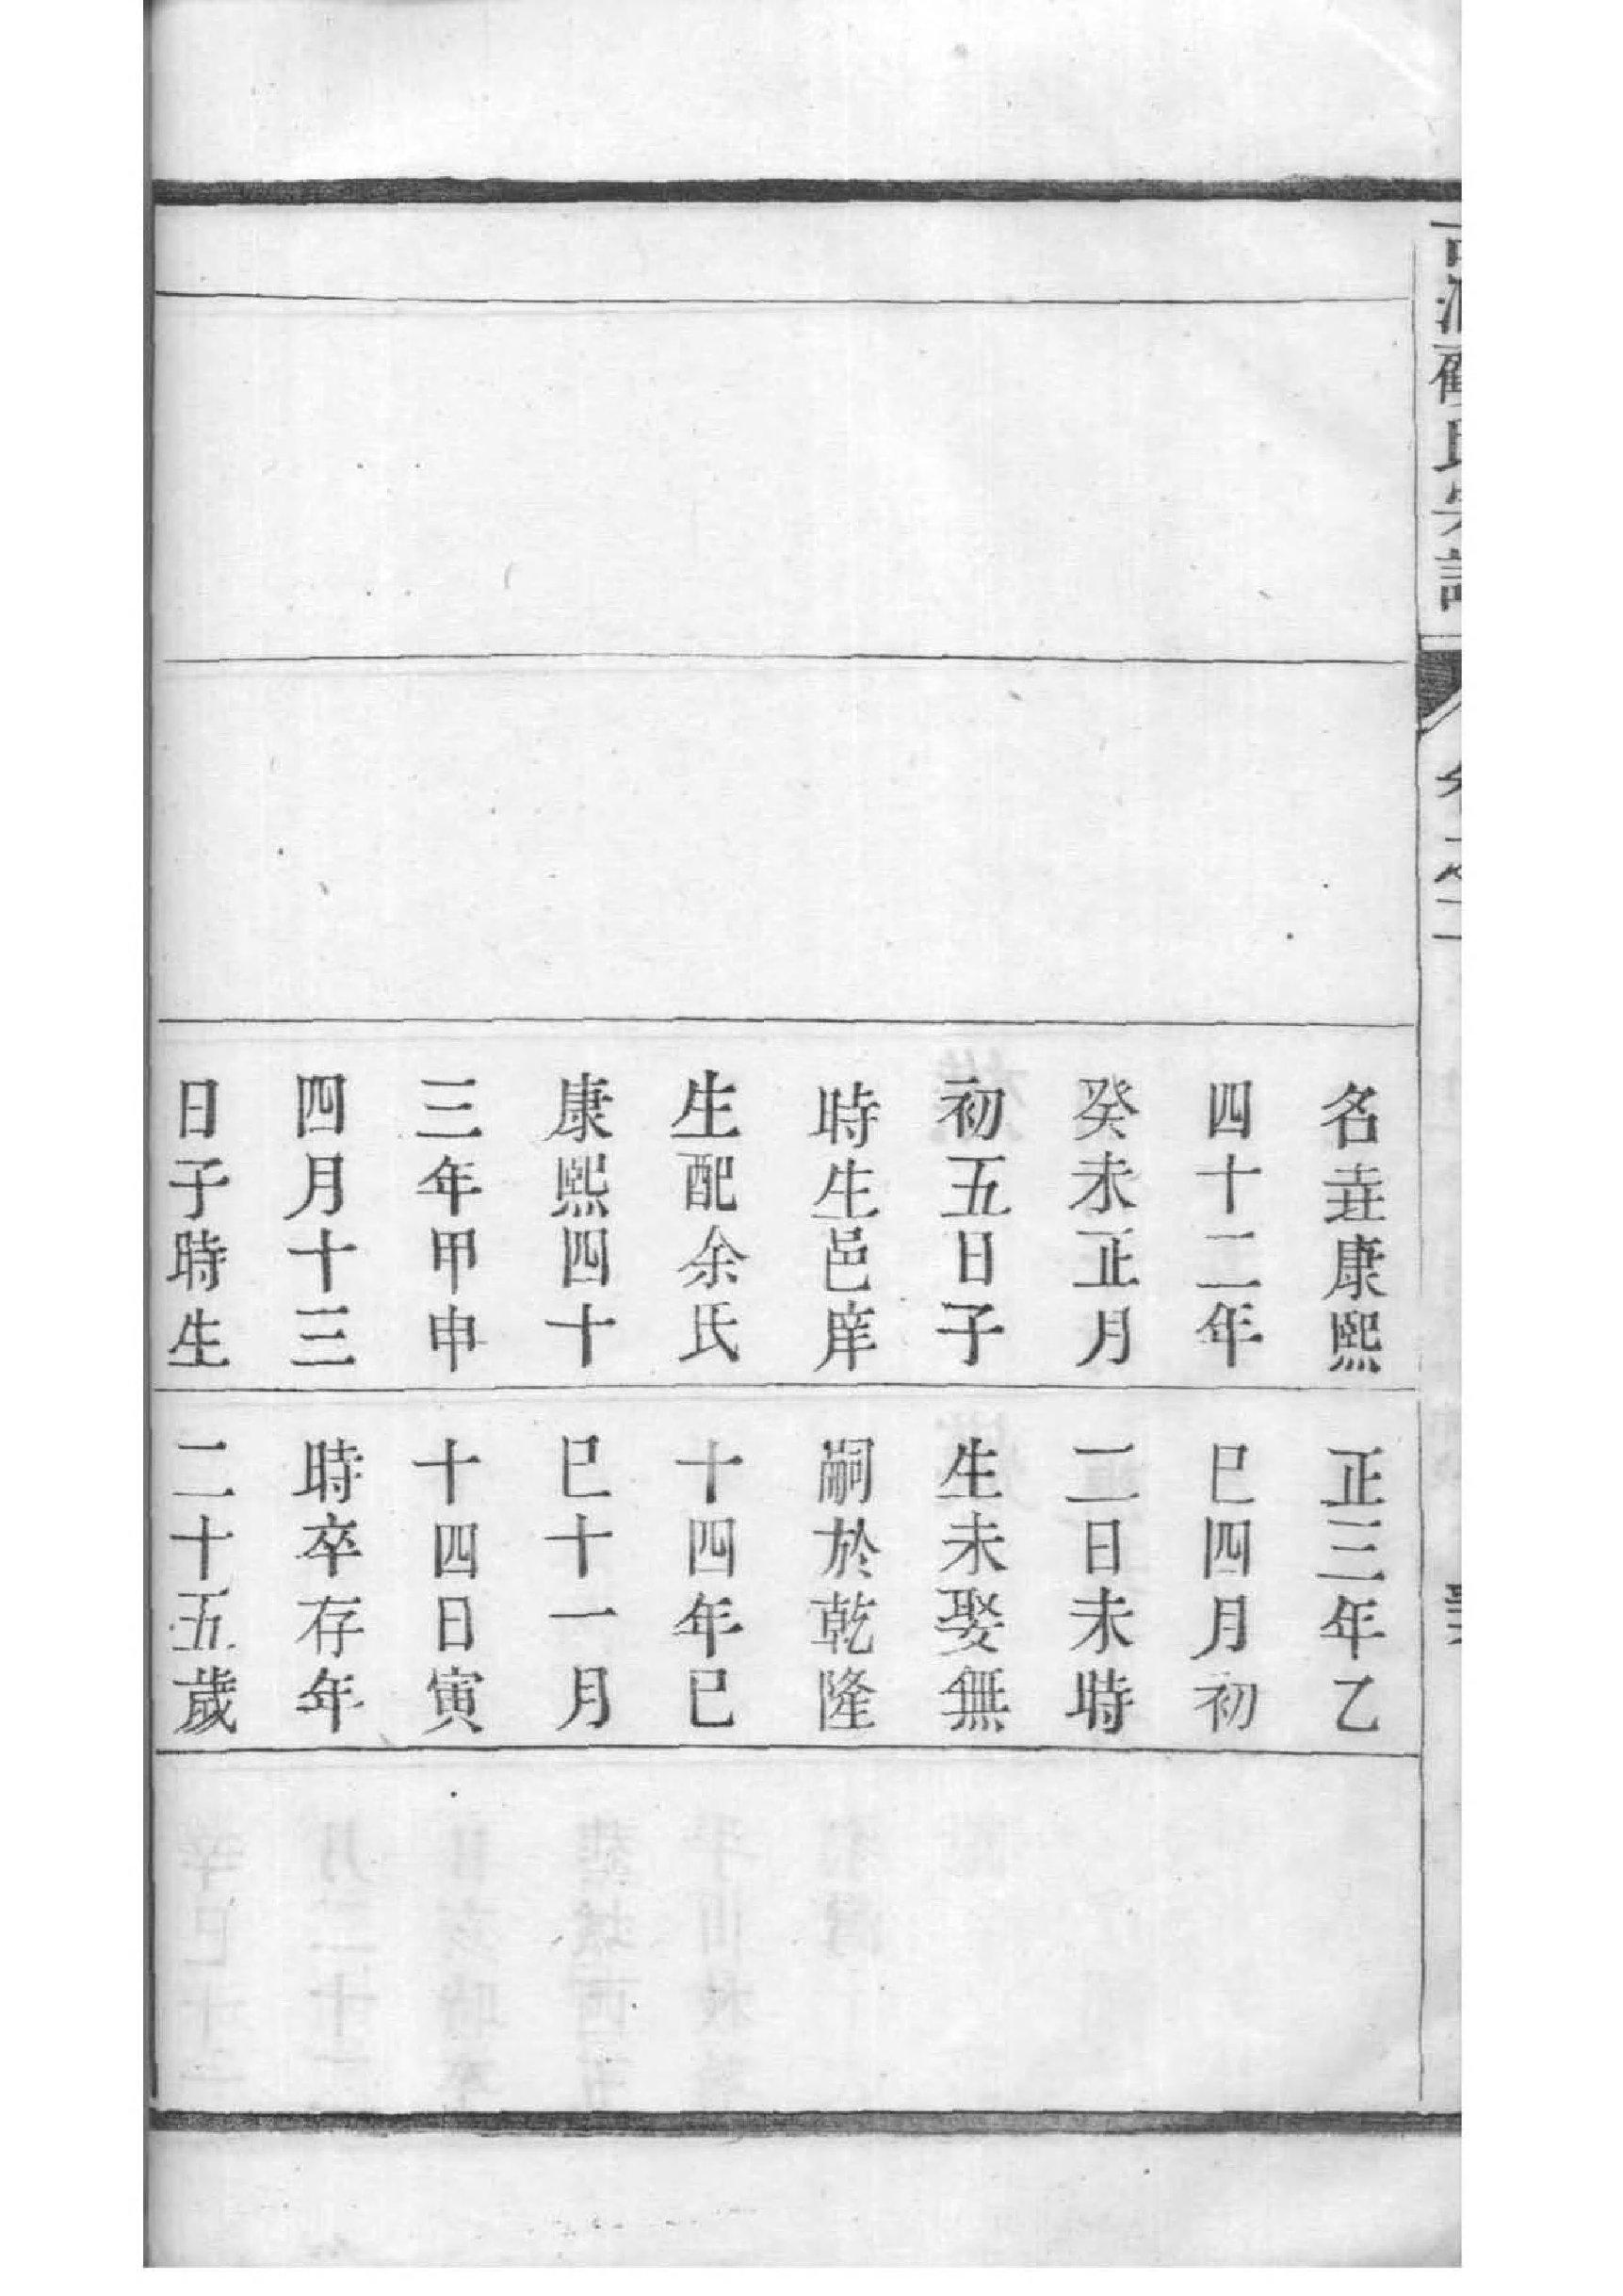 名垚康熙
四十二年
癸未正月
初五日子
時生邑庠
生配余氏
康熙四十
三年甲申
四月十三
日子時生
正三年乙
巳四月初
二日未時
生未娶無
嗣於乾隆
十四年巳
巳十一月
十四日寅
時卒存年
二十五歲